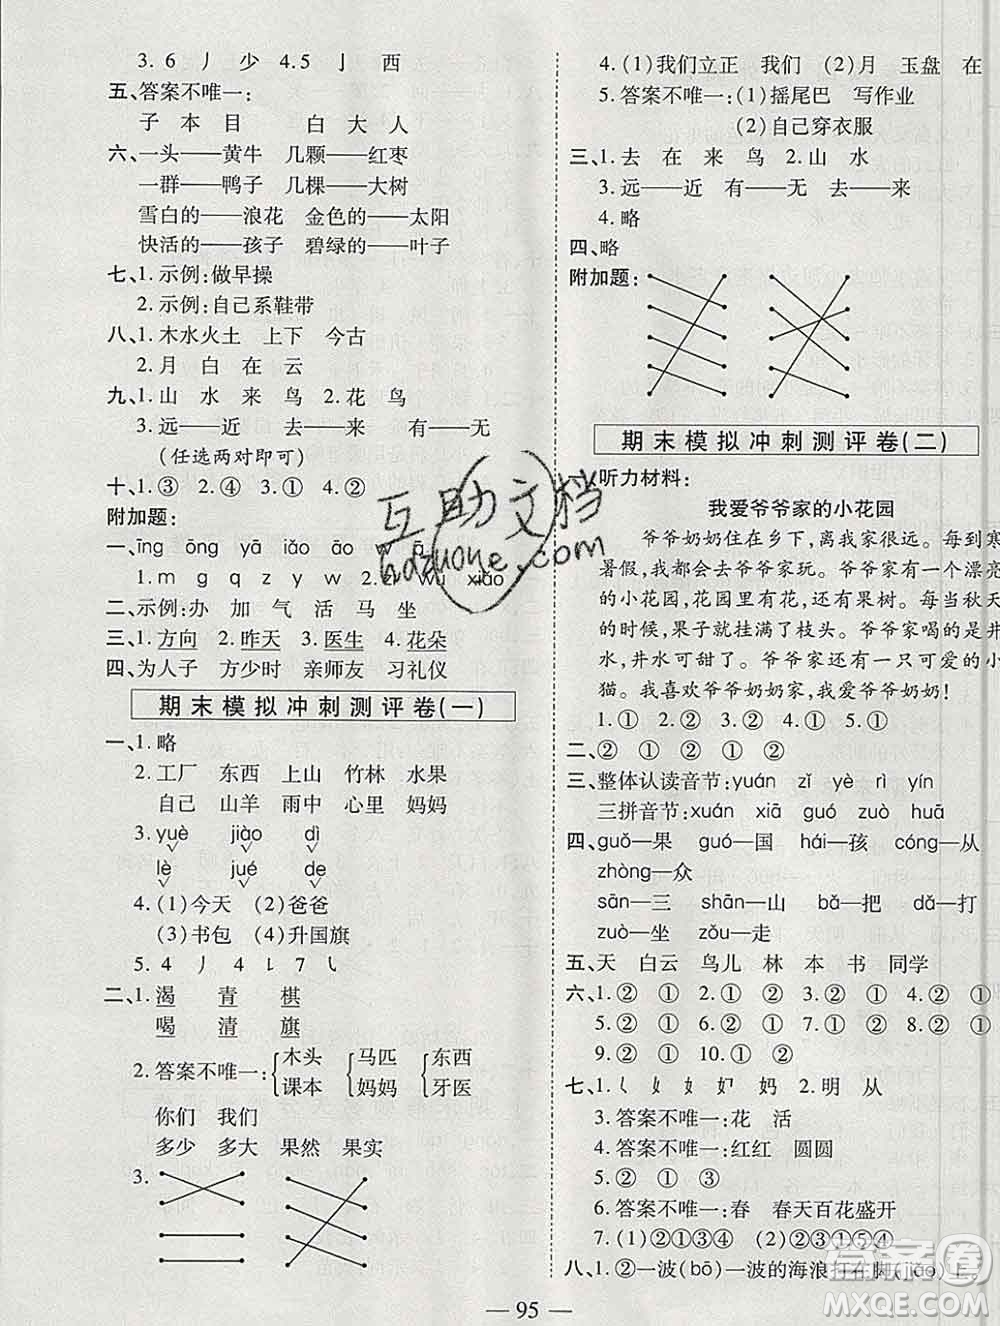 3. 6 丿 少 4.5 亅 西
五、答案不唯一:
子 本 目 白 大 人
六、一头——黄牛 几颗——红枣
一群——鸭子 几棵——大树
雪白的——浪花 金色的——太阳
快活的——孩子 碧绿的——叶子
七、1. 示例:做早操
2. 示例:自己系鞋带
八、1. 木水火土 上下 今古
2. 月 白 在 云
九、1. 山 水 来 鸟 2. 花 鸟
3. 远——近 去——来 有——无
(任选两对即可)
十、1. ③ 2. ④ 3. ① 4. ②
附加题:
一、īng ōng yā iǎo āo
1. m g q z y w 2.
二、示例:办 加 气 活 马 坐
三、1. 方向 2. 昨天 3. 医生 4. 花朵
四、为人子 方少时 亲师友 习礼仪
期末模拟冲刺测评卷(一)
一、1. 略
2. 工厂 东西 上山 竹林 水果
自己 山羊 雨中 心里 妈妈
3. yuè jiào dì
lè jué de
4. (1)今天 (2)爸爸
(3)书包 (4)升国旗
5. 4 丿 4 ㇏ 7 ㇏
二、1. 渴 青 棋
喝 清 旗
2. 答案不唯一: 木头 马匹 东西
课本 妈妈 牙医
你们 我们
多少 多大 果然 果实
3.
4. (1)我们立正 我们 (2)月 玉盘 在
5. 答案不唯一:(1)摇尾巴 写作业
(2)自己穿衣服
三、1. 去 在 来 鸟 2. 山 水
3. 远——近 有——无 去——来
4. 略
四、略
附加题:
期末模拟冲刺测评卷(二)
一、听力材料:
我爱爷爷家的小花园
爷爷奶奶住在乡下,离我家很远。每到寒
暑假,我就去爷爷家玩。爷爷家有一个漂亮
的小花园,花园里有花,还有果树。每当秋天
的时候,果子就挂满了枝头。爷爷家喝的是井
水,井水可甜了。爷爷家还有一只可爱的小
猫。我喜欢爷爷奶奶家,我爱爷爷奶奶!
1. ① 2. ① 3. ① 4. ① 5. ①
二、② ① ② ① ②
三、整体认读音节:yuán zǐ yè rì yín
三拼音节:xuán xiā guó zuò huā
四、guǒ—果 guó—国 hái—孩 cóng—从
zhòng—众
sān—三 shān—山 bǎ—把 dǎ—打
zuò—坐 zǒu—走
五、天 白云 鸟儿 林 本 书 同学
六、1. ② ① 2. ② ① 3. ② ① 4. ② ①
5. ② ① 6. ② ① 7. ② ① 8. ② ①
9. ② ① 10. ① ②
七、1. 妈 2. 明 从
3. 答案不唯一:花 活
4. 答案不唯一:红红 圆圆
5. ② ① ③
6. 答案不唯一:春 春天百花盛开
7. (1)②①③④ (2)②③①⑤④
八、1. ②一波(bō)一波的海浪打在脚(jiǎo)上。
— 95 —
互助文档
hdzuone.com
xiǎo
答案圈
MXQE.COM